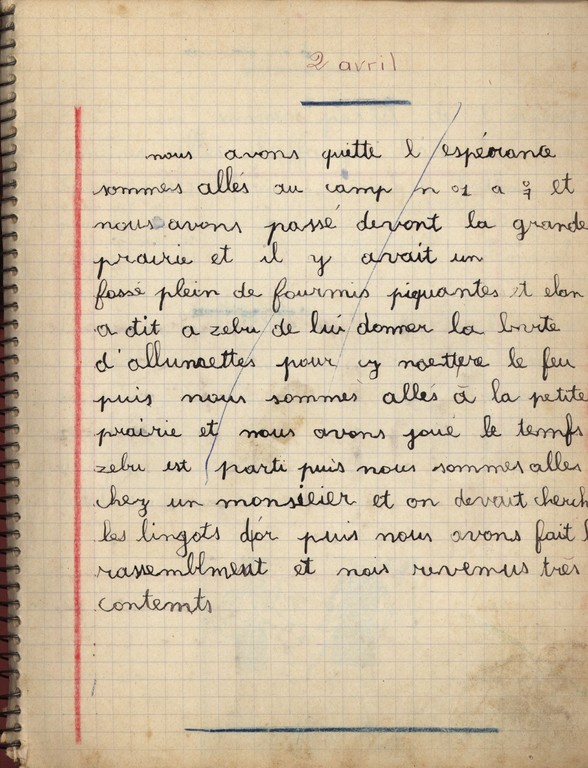 2 avril
nous avons quitte l'espérance
sommes allés au camp n 01 a et
nous avons passé devont la grande
prairie et il y avait un
fossé plein de fourmis piquantes et elan
a dit a zebu de lui donner la boite
d'allumettes pour y mettre le feu
puis nous sommes allés à la petite
prairie et nous avons joué le temps
zebu est parti puis nous sommes alles
chez un monsieier et on devait cherch
les lingots d'or puis nous avons fait l
rassemblment et nois revenus très
contemts